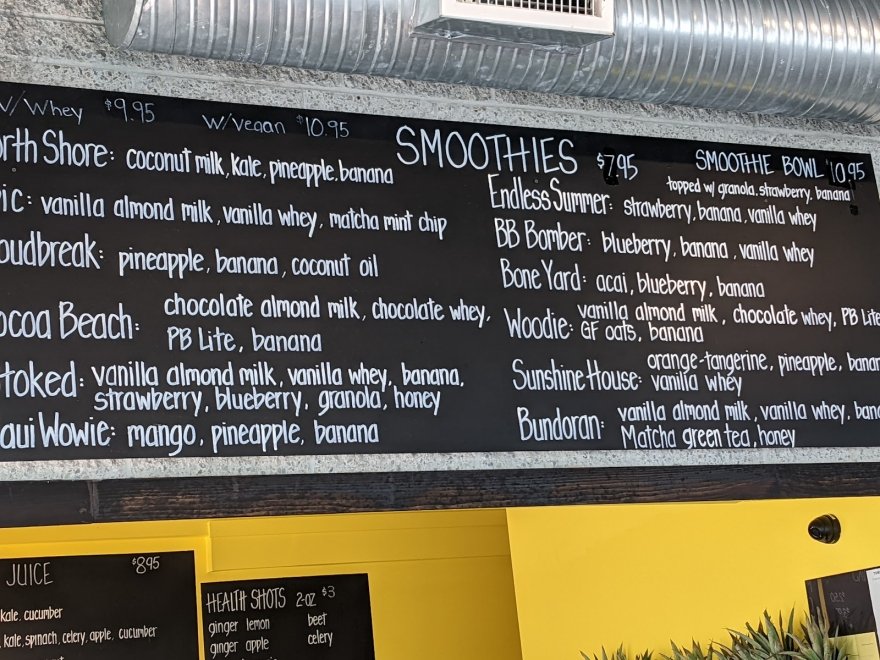 W/Whey $9.95 W/vegan $10.95
SMOOTHIES $7.95
SMOOTHIE BOWL 10.95
topped w/ granola, strawberry, banana
orth Shore: coconut milk, kale, pineapple, banana
ic: vanilla almond milk, vanilla whey, matcha mint chip
oudbreak: pineapple, banana, coconut oil
ocoa Beach: chocolate almond milk, chocolate whey,
PB Lite, banana
toked: vanilla almond milk, vanilla whey, banana,
strawberry, blueberry, granola, honey
aui Wowie: mango, pineapple, banana
Endless Summer: strawberry, banana, vanilla whey
BB Bomber: blueberry, banana, vanilla whey
Bone Yard: acai, blueberry, banana
Woodie: vanilla almond milk, chocolate whey, PB Lite
GF oats, banana
Sunshine House: orange-tangerine, pineapple, banan
vanilla whey
Bundoran: vanilla almond milk, vanilla whey, bana
Matcha green tea, honey
JUICE $8.95
kale, cucumber
kale, spinach, celery, apple, cucumber
HEALTH SHOTS 2-oz $3
ginger lemon beet
ginger apple celery